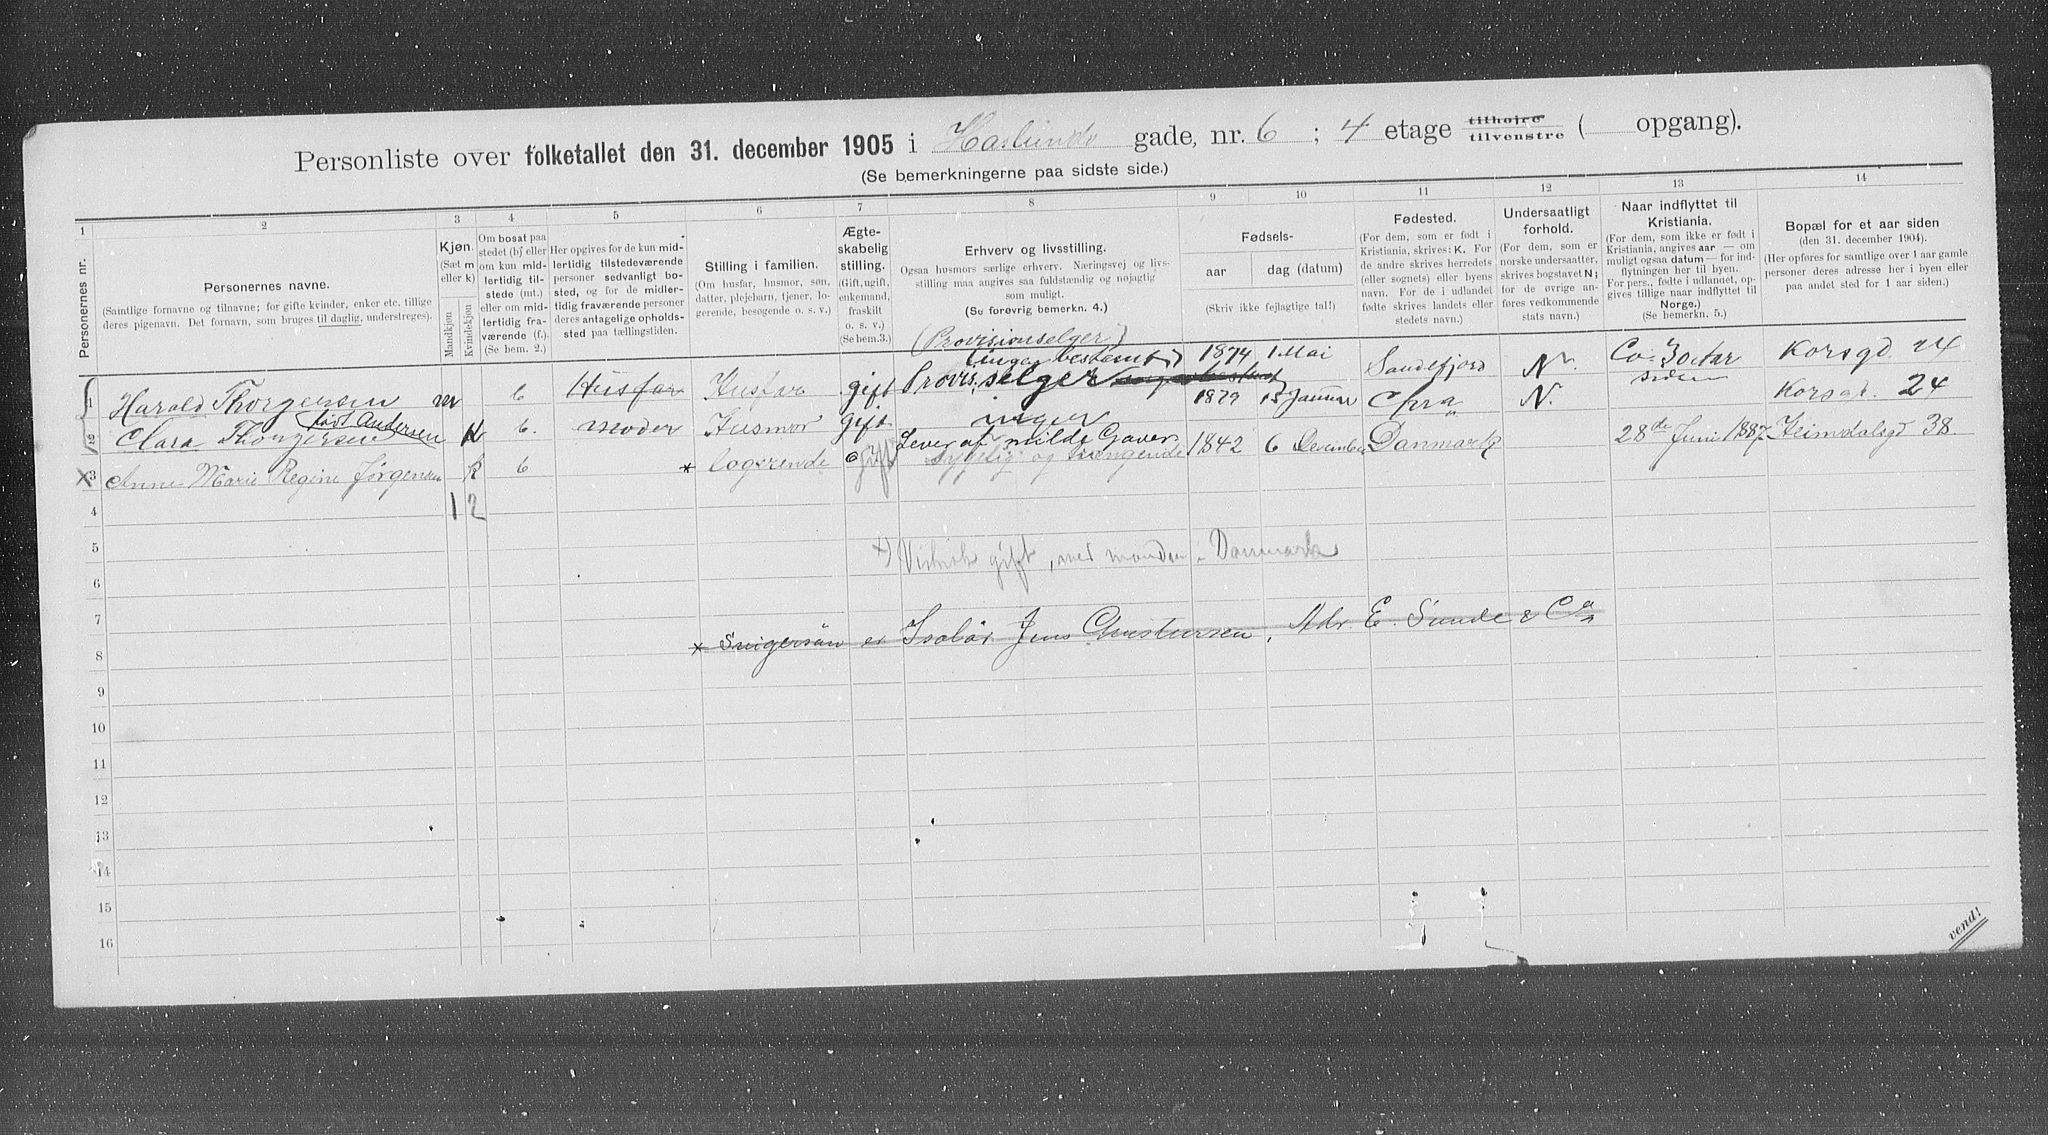 Personliste over folketallet den 31. december 1905 i Haslunds gade, nr. 6 ; 4 etage tilhøjre tilvenstre ( opgang).
(Se bemerkningerne paa sidste side.)
1 2 3 4 5 6 7 8 9 10 11 12 13 14
Personernes nr.
Personernes navne.
(Samtlige fornavne og tilnavne; for gifte kvinder, enker etc. tillige
deres pigenavn. Det fornavn, som bruges til daglig, understreges).
Kjøn.
(Sæt m
eller k)
Mandkjøn
Kvindekjøn
Om bosat paa
stedet (b) eller
om kun mid-
lertidig til-
stede (mt.)
eller om mid-
lertidig fra-
værende (f.).
(Se bem. 2.)
Her opgives for de kun mid-
lertidig tilstedeværende
personer sedvanligt bo-
sted, og for de midler-
tidig fraværende personer
deres antagelige opholds-
sted paa tællingstiden.
Stilling i familien.
(Om husfar, husmor, søn,
datter, plejebarn, tjener, lo-
gerende, besøgende o. s. v.)
Ægte-
skabelig
stilling.
(Gift, ugift,
enkemand,
fraskilt
o. s. v.)
(Se bem.3.)
Erhverv og livsstilling.
Ogsaa husmors særlige erhverv. Næringsvej og livs-
stilling maa angives saa fuldstændig og nøjagtig
som muligt.
(Se forøvrig bemerkn. 4.)
Fødsels-
aar
dag (datum)
(Skriv ikke fejlagtige tal!)
Fødested.
(For dem, som er født i
Kristiania, skrives: K. For
de andre skrives herredets
(eller sognets) eller byens
navn. For de i udlandet
fødte skrives landets eller
stedets navn.)
Undersaatligt
forhold.
(For dem, som er
norske undersaatter,
skrives bogstavet N;
for de øvrige an-
føres vedkommende
stats navn.)
Naar indflyttet til
Kristiania.
(For dem, som ikke er født i
Kristiania, angives aar — om
muligt ogsaa datum — for ind-
flytningen her til byen.
For pers., fødte i udlandet, op-
gives tillige naar indflyttet til
Norge.)
(Se bemerkn. 5.)
Bopæl for et aar siden
(den 31. december 1904).
(Her opføres for samtlige over 1 aar gamle
personer deres adresse her i byen eller
paa andet sted for 1 aar siden.)
(Provisionselger)
1 Harald Thorgersen m b Husfar Husfar gift Provis. selger 1874 1 Mai Sandefjord N. Korsgd 24
født Andersen
2 Clara Thorgersen K b. moder Husmor gift ingen 1879 15 Januar Chra N. Korsgd. 24
3 Anne Marie Regine Jørgensen k b * logerende gift Lever af milde Gaver 1842 6 December Danmark 28de Juni 1887 Heimdalsgd 38.
sygelig og trængende
4 1 2
5
gift, med manden i Danmark
6
7
* er Isolør Jens Christensen, Adr. E. Sunde & Co
8
9
10
11
12
13
14
15
16
vend!